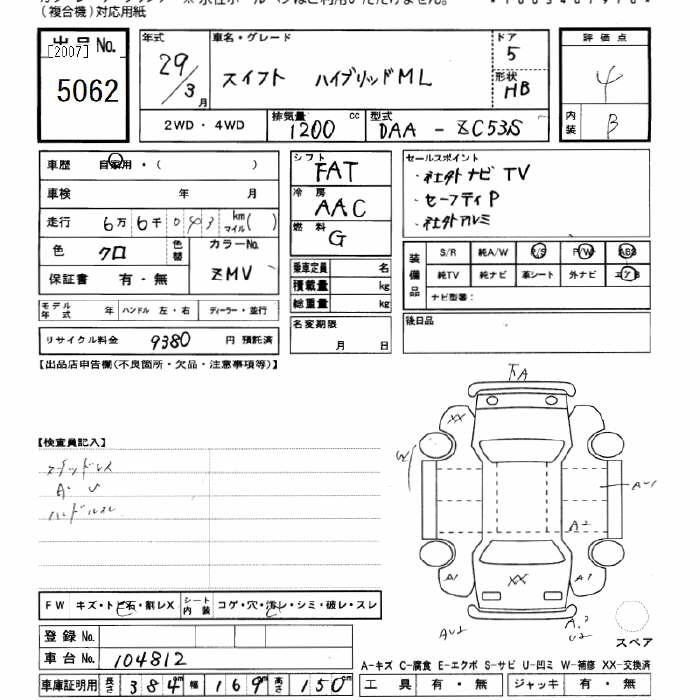 (複合機)対応用紙
出品 No.
[2007]
5062
年式
29/3月
車名・グレード
スイフト ハイブリッドML
ドア
5
形状
HB
評価点
4
内装
B
2WD・4WD
排気量
1200 cc
型式
DAA - ZC53S
車歴 自家用・( )
車検 年 月
走行 6万6千043 km マイル( )
色 クロ
色替
カラーNo.
ZMV
保証書 有・無
モデル年式 年 ハンドル 左・右 ディーラー・並行
リサイクル料金 9380 円 預託済
シフト
FAT
冷房
AAC
燃料
G
乗車定員 名
積載量 kg
総重量 kg
名変期限
月 日
セールスポイント
・社外ナビ TV
・セーフティP
・社外アルミ
装備品
S/R 純A/W P/S P/W ABS
純TV 純ナビ 革シート 外ナビ エアB
ナビ型番:
後日品
【出品店申告欄(不良箇所・欠品・注意事項等)】
【検査員記入】
スタッドレス
A・U
ハンドルスレ
FW キズ・トビ石・割レX シート内装 コゲ・穴・汚レ・シミ・破レ・スレ
登録 No.
車台 No. 104812
車庫証明用 長さ 384cm 幅 169cm 高さ 150cm
XX
A2
A1
XX
A1
AU2
スペア
A−キズ C−腐食 E−エクボ S−サビ U−凹ミ W−補修 XX−交換済
工具 有・無 ジャッキ 有・無